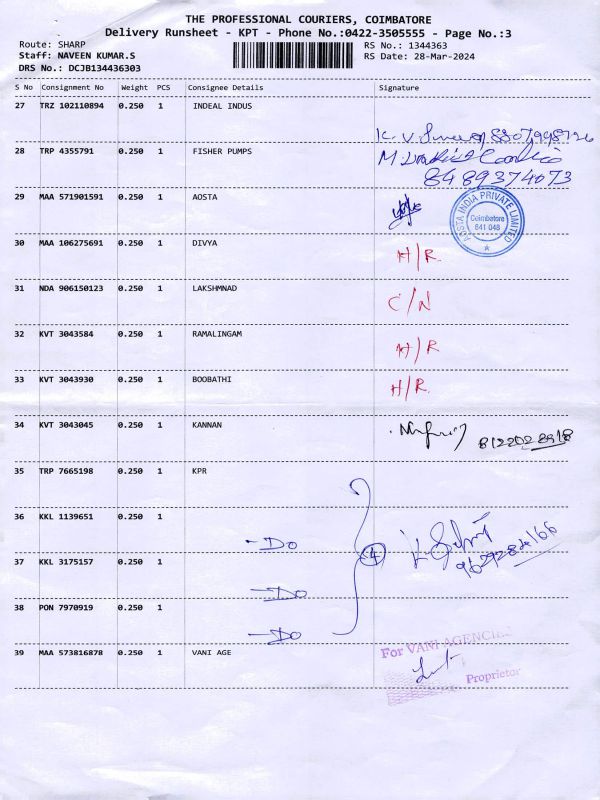 THE PROFESSIONAL COURIERS, COIMBATORE
Delivery Runsheet - KPT - Phone No.:0422-3505555 - Page No.:3
Route: SHARP
RS No.: 1344363
Staff: NAVEEN KUMAR.S
RS Date: 28-Mar-2024
DRS No.: DCJB134436303
S No Consignment No Weight PCS Consignee Details Signature
27 TRZ 102110894 0.250 1 INDEAL INDUS
28 TRP 4355791 0.250 1 FISHER PUMPS
8489374073
29 MAA 571901591 0.250 1 AOSTA
AOSTA INDIA PRIVATE LIMITED
Coimbatore
641 048
30 MAA 106275691 0.250 1 DIVYA H/R
31 NDA 906150123 0.250 1 LAKSHMNAD C/N
32 KVT 3043584 0.250 1 RAMALINGAM H/R
33 KVT 3043930 0.250 1 BOOBATHI H/R
34 KVT 3043045 0.250 1 KANNAN
35 TRP 7665198 0.250 1 KPR
36 KKL 1139651 0.250 1 - Do
37 KKL 3175157 0.250 1 - Do
4
38 PON 7970919 0.250 1 - Do
39 MAA 573816878 0.250 1 VANI AGE
For VANI AGENCIES
Proprietor